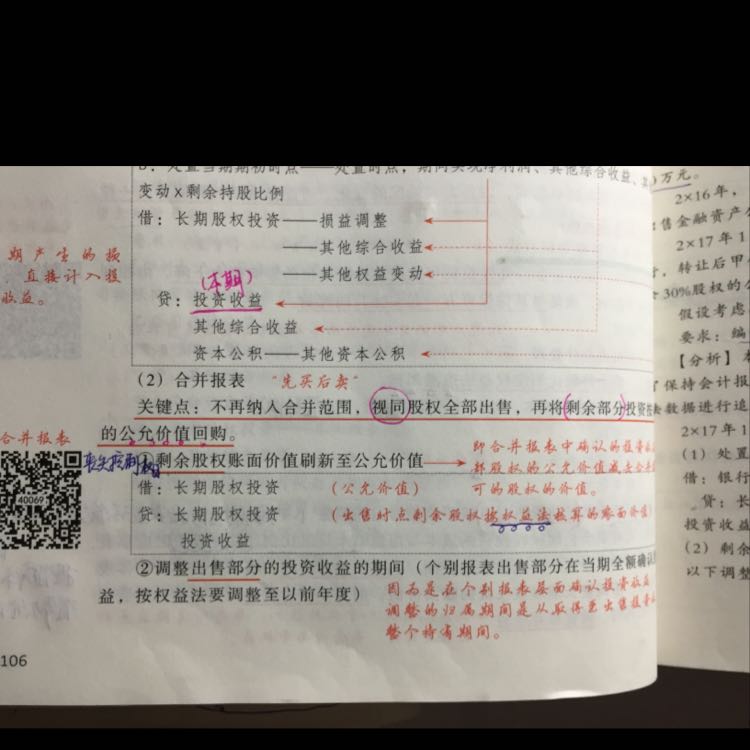 处置当期期初时点——处置时点，期间实现净利润、其他综合收益、其
变动×剩余持股比例
借：长期股权投资——损益调整
——其他综合收益
——其他权益变动
(本期)
贷：投资收益
其他综合收益
资本公积——其他资本公积
期产生的损
，直接计入投
收益。
(2) 合并报表 "先买后卖"
关键点：不再纳入合并范围，视同股权全部出售，再将(剩余部分)投资按
的公允价值回购。
合并报表
丧失控制权
40069
①剩余股权账面价值刷新至公允价值
即合并报表中确认的投资收
部股权的公允价值减去合并
可的股权的价值。
借：长期股权投资 (公允价值)
贷：长期股权投资 (出售时点剩余股权按权益法核算的账面价值)
投资收益
②调整出售部分的投资收益的期间（个别报表出售部分在当期全额确认
益，按权益法要调整至以前年度）
因为是在个别报表层面确认投资收益
调整的归属期间是从取得至出售投资
整个持有期间。
106
万元。
2×16年，
售金融资产
2×17年1
，转让后甲
30%股权的公
假设考虑
要求：编
【分析】
保持会计报
数据进行追
2×17年1
(1) 处置
借：银行
贷：长
投资收益
(2) 剩余
以下调整